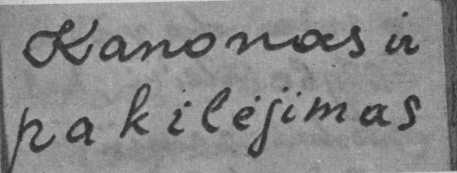 Kanonas ir
pakilėjimas